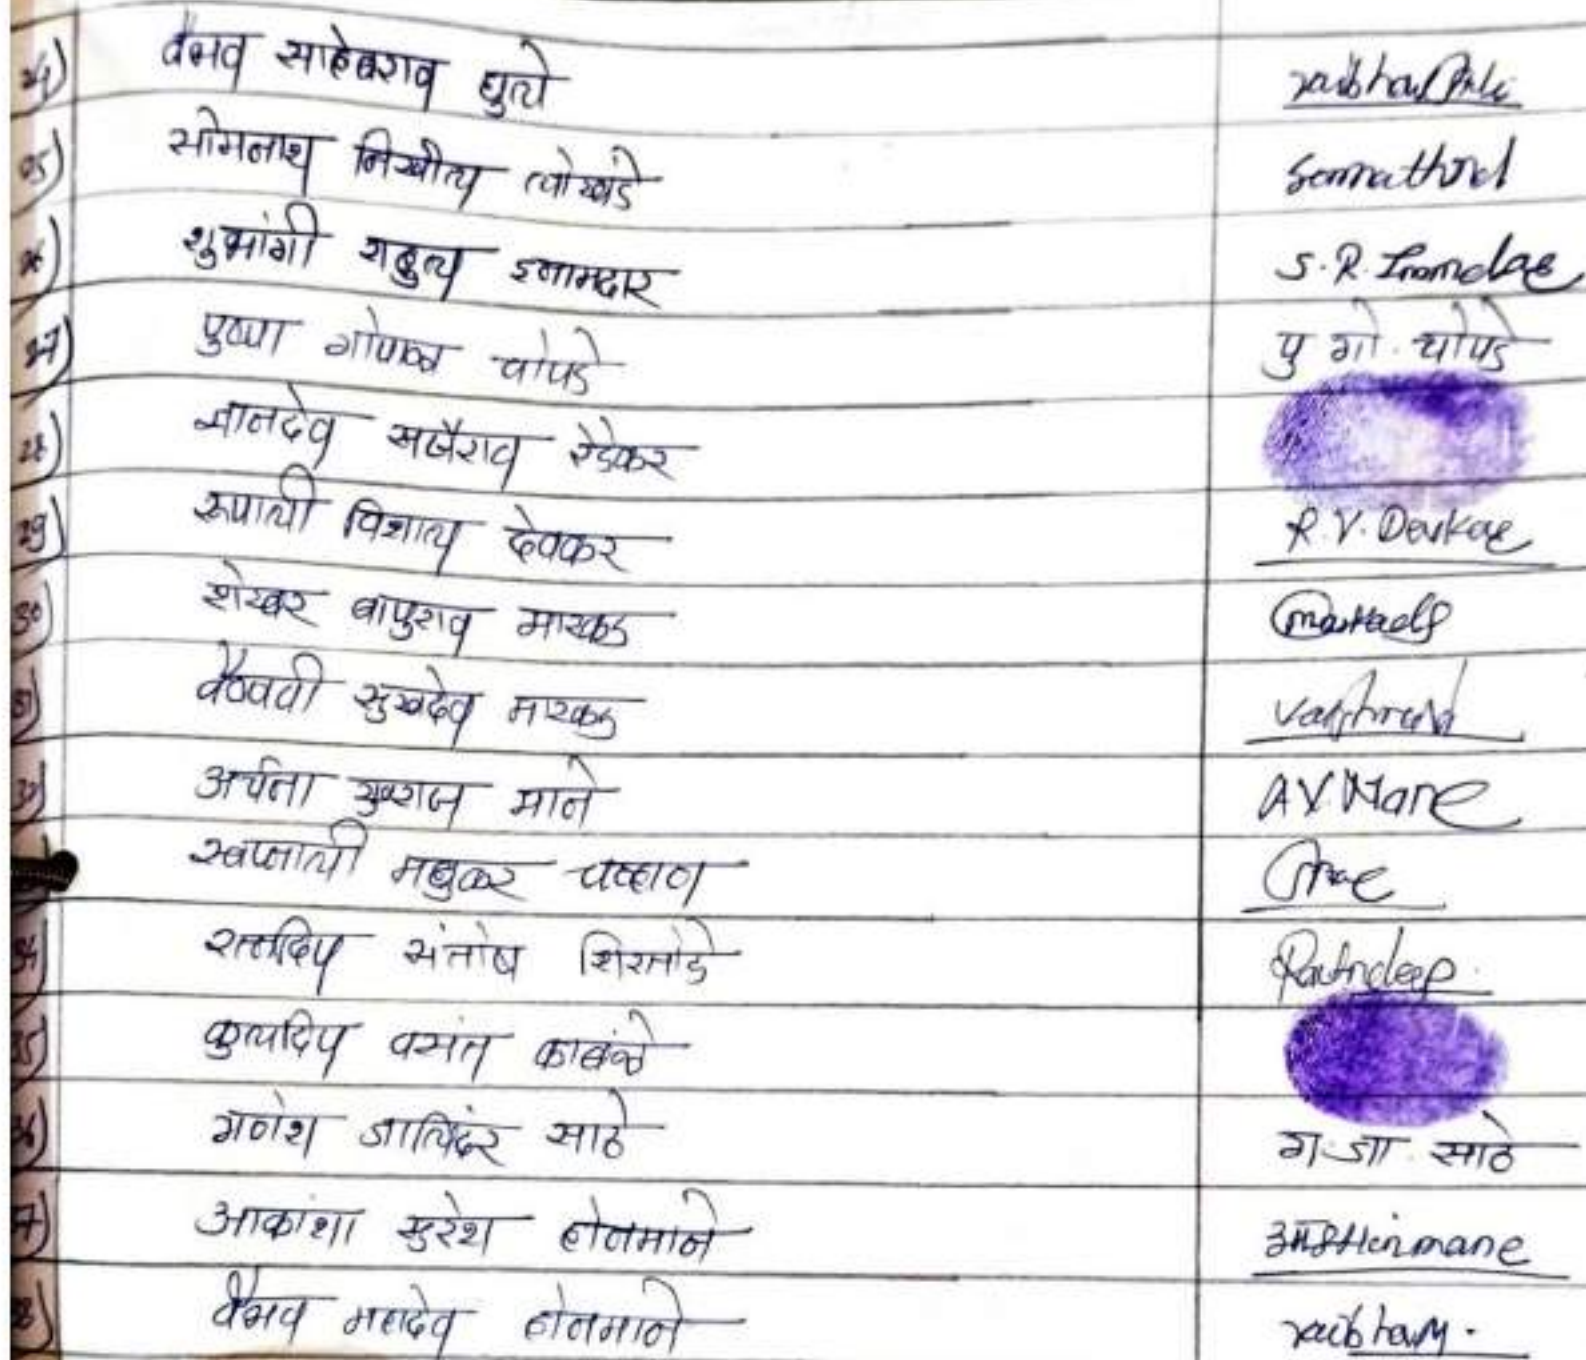 24) वैभव साहेबराव घुले vaibhav
25) सोमनाथ निखील लोखंडे Somnath
26) शुभांगी राहुल इनामदार S. R. Inamdar
27) पुष्पा गोपाळ चोपडे पु गो. चोपडे
28) ज्ञानदेव सर्जेराव रेडेकर
29) रूपाली विशाल देवकर R. V. Devkar
30) शेखर बापुराव मारकड
31) वैष्णवी सुखदेव मारकड Vaishnavi
32) अर्चना युवराज माने A Y Mane
स्वप्नाली मधुकर चव्हाण
34) रत्नदिप संतोष शिरतोडे Ratndeep
35) कुलदिप वसंत कांबळे
36) गणेश जालिंदर साठे ग. जा. साठे
37) आकांशा सुरेश होनमाने
38) वैभव महादेव होनमाने vaibhav